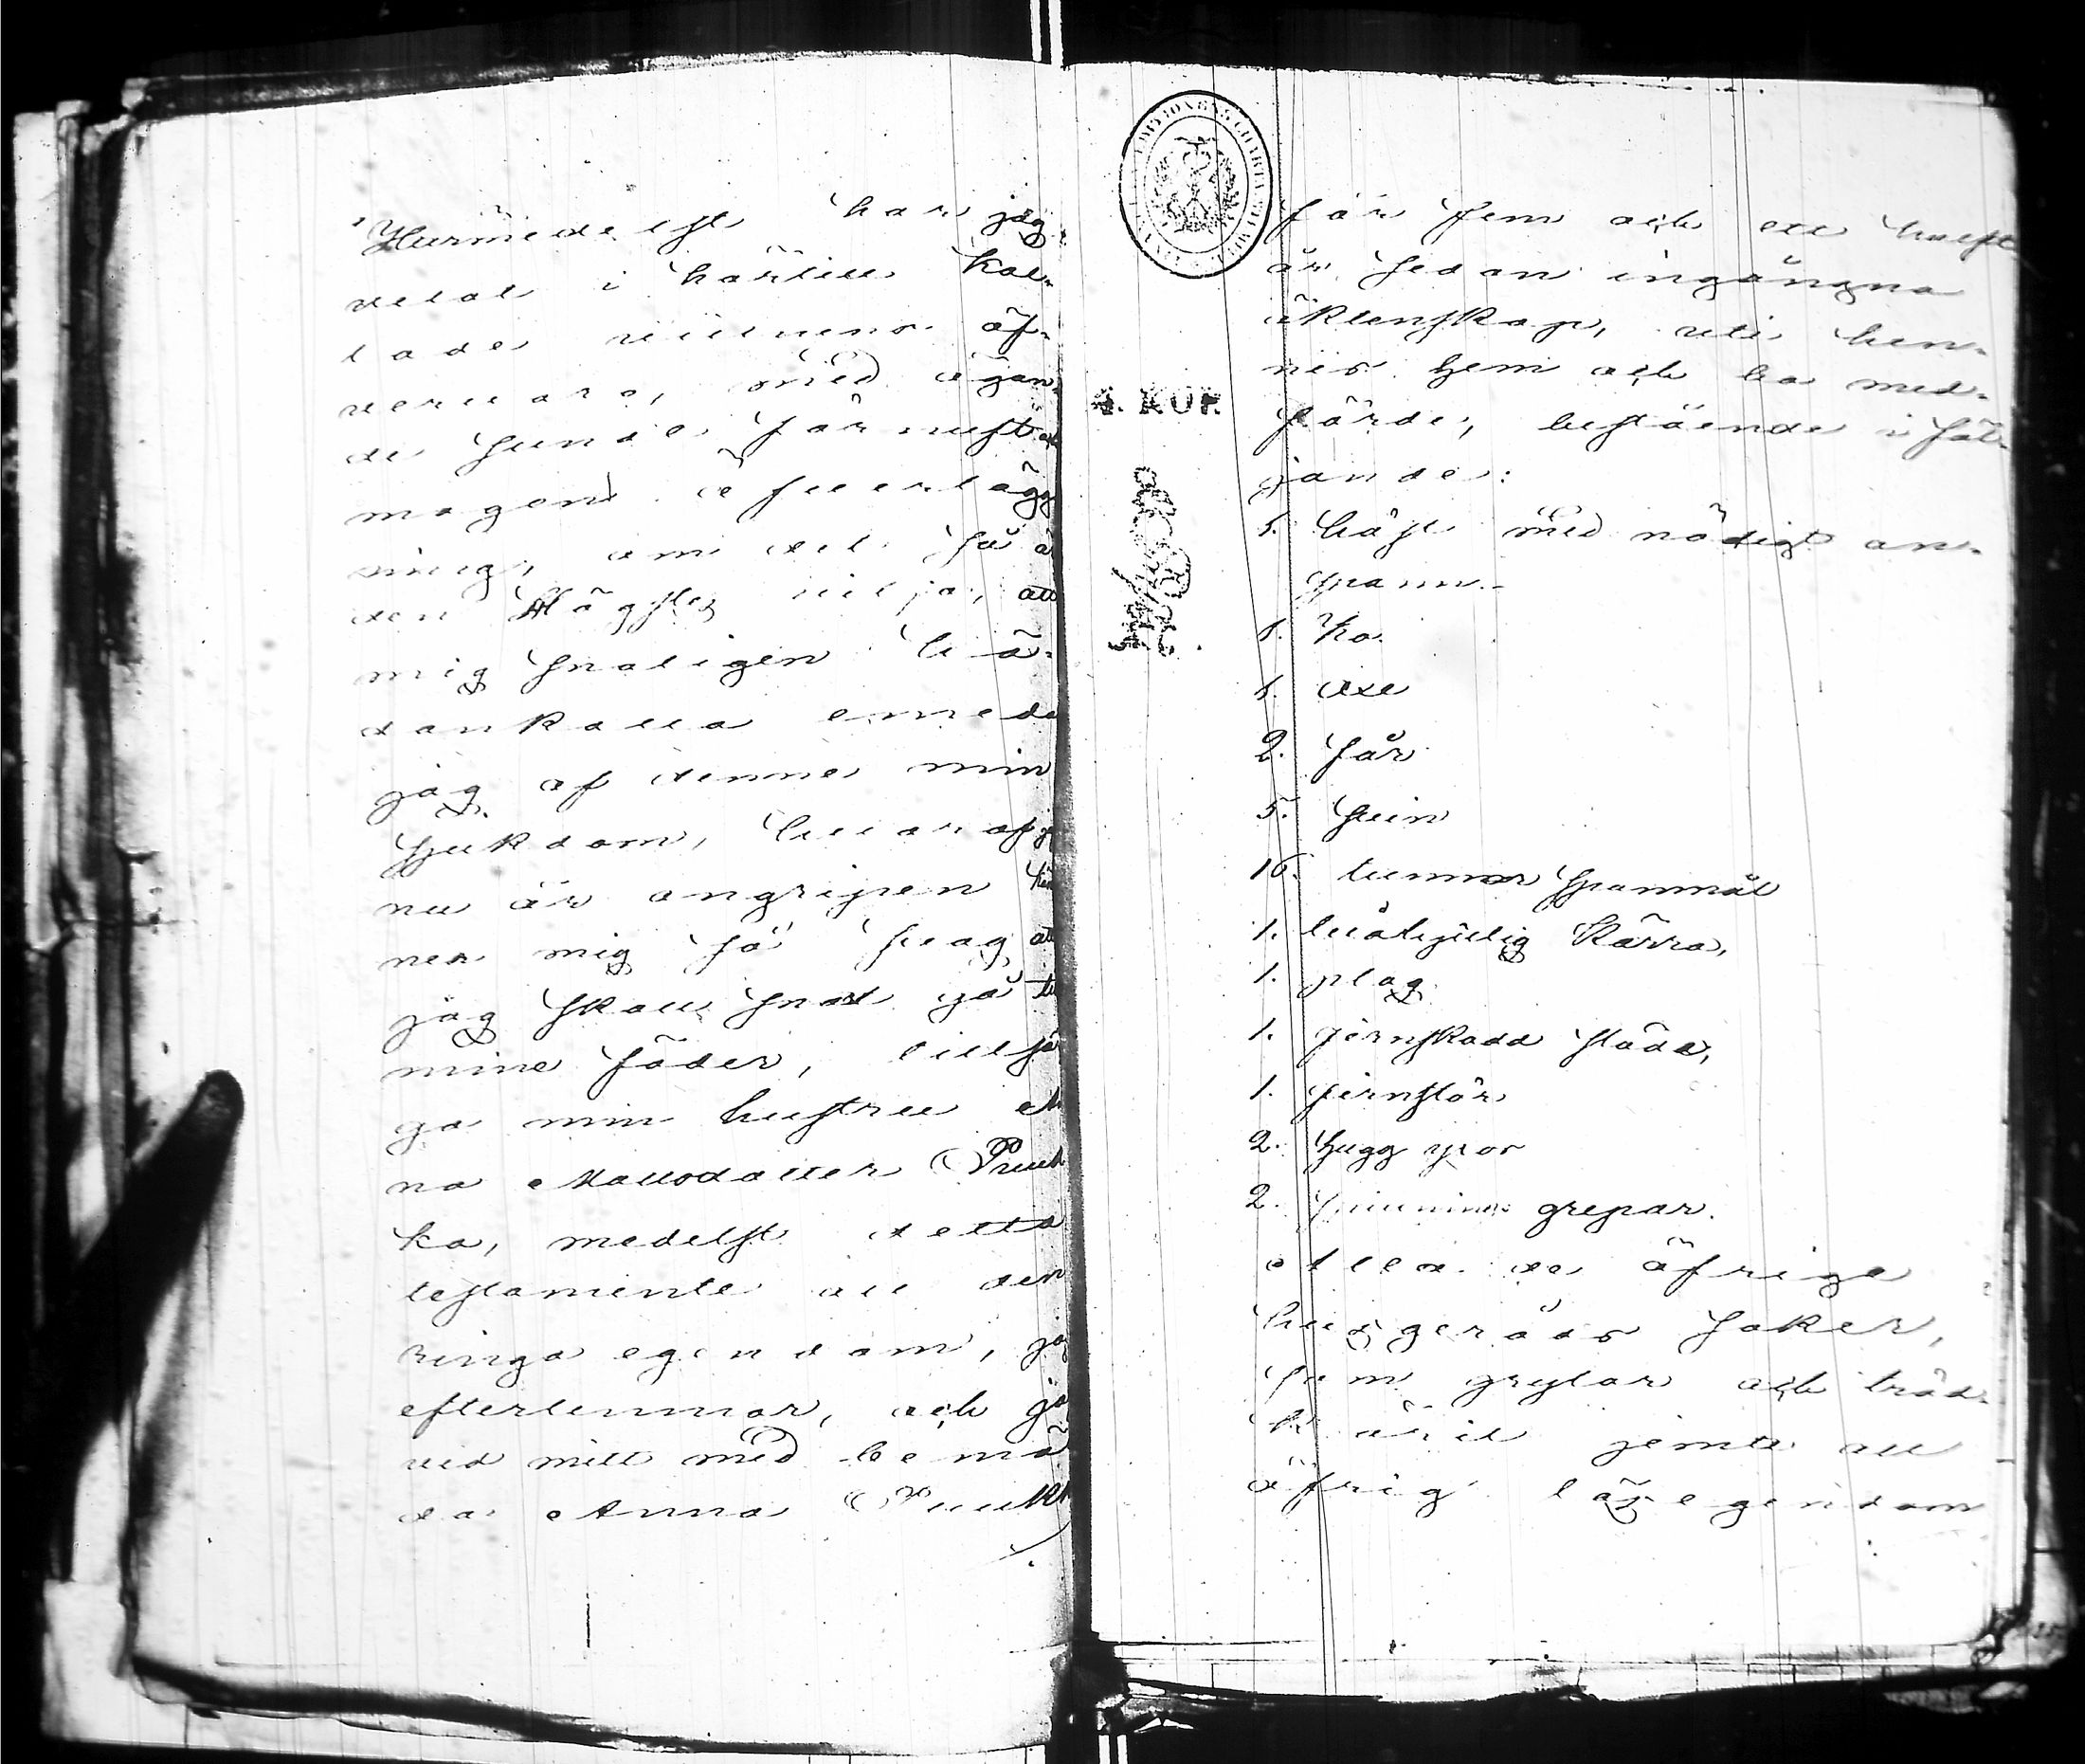 Hurmedelst har jag,
vetat i härtill kal-
lade vittnens öf-
vervaro, med ägan-
de sunda förnuft och
mogen öfverlägg
ning, om det så är
den Högstes vilja, att
mig snaligen hä-
dankalla emedan
jag af denna min
sjukdom, hvaraf jag
nu är angripen kän
ner mig så svag att
jag skall snart gå till
mine fäder, tillsä
ga min hustru An
na Mattsdatter Puuk
ka, medelst detta
testamente all den
ringa egendom, jag
efterlemnar, och ja
vid mitt med bemä
da Anna Puukk
4. KOP.
för fem och ett halft
år sedan ingångna
äktenskap, uti hen-
nes hem och bo med-
förde, bestående i föl-
jande:
1. häst med nödigt an-
spann.-
1. ko.
1. oxe
2. får
5. svin
16. tunnor spanmål
1. tvåhjulig kärra,
1. plog.
1. jernskodd släda,
1. jernstör
2. hugg yxor
2. grepar.
Alla de öfriga
husgeråds saker,
som grytor och träd-
käril jemte all
öfrig lösegendom